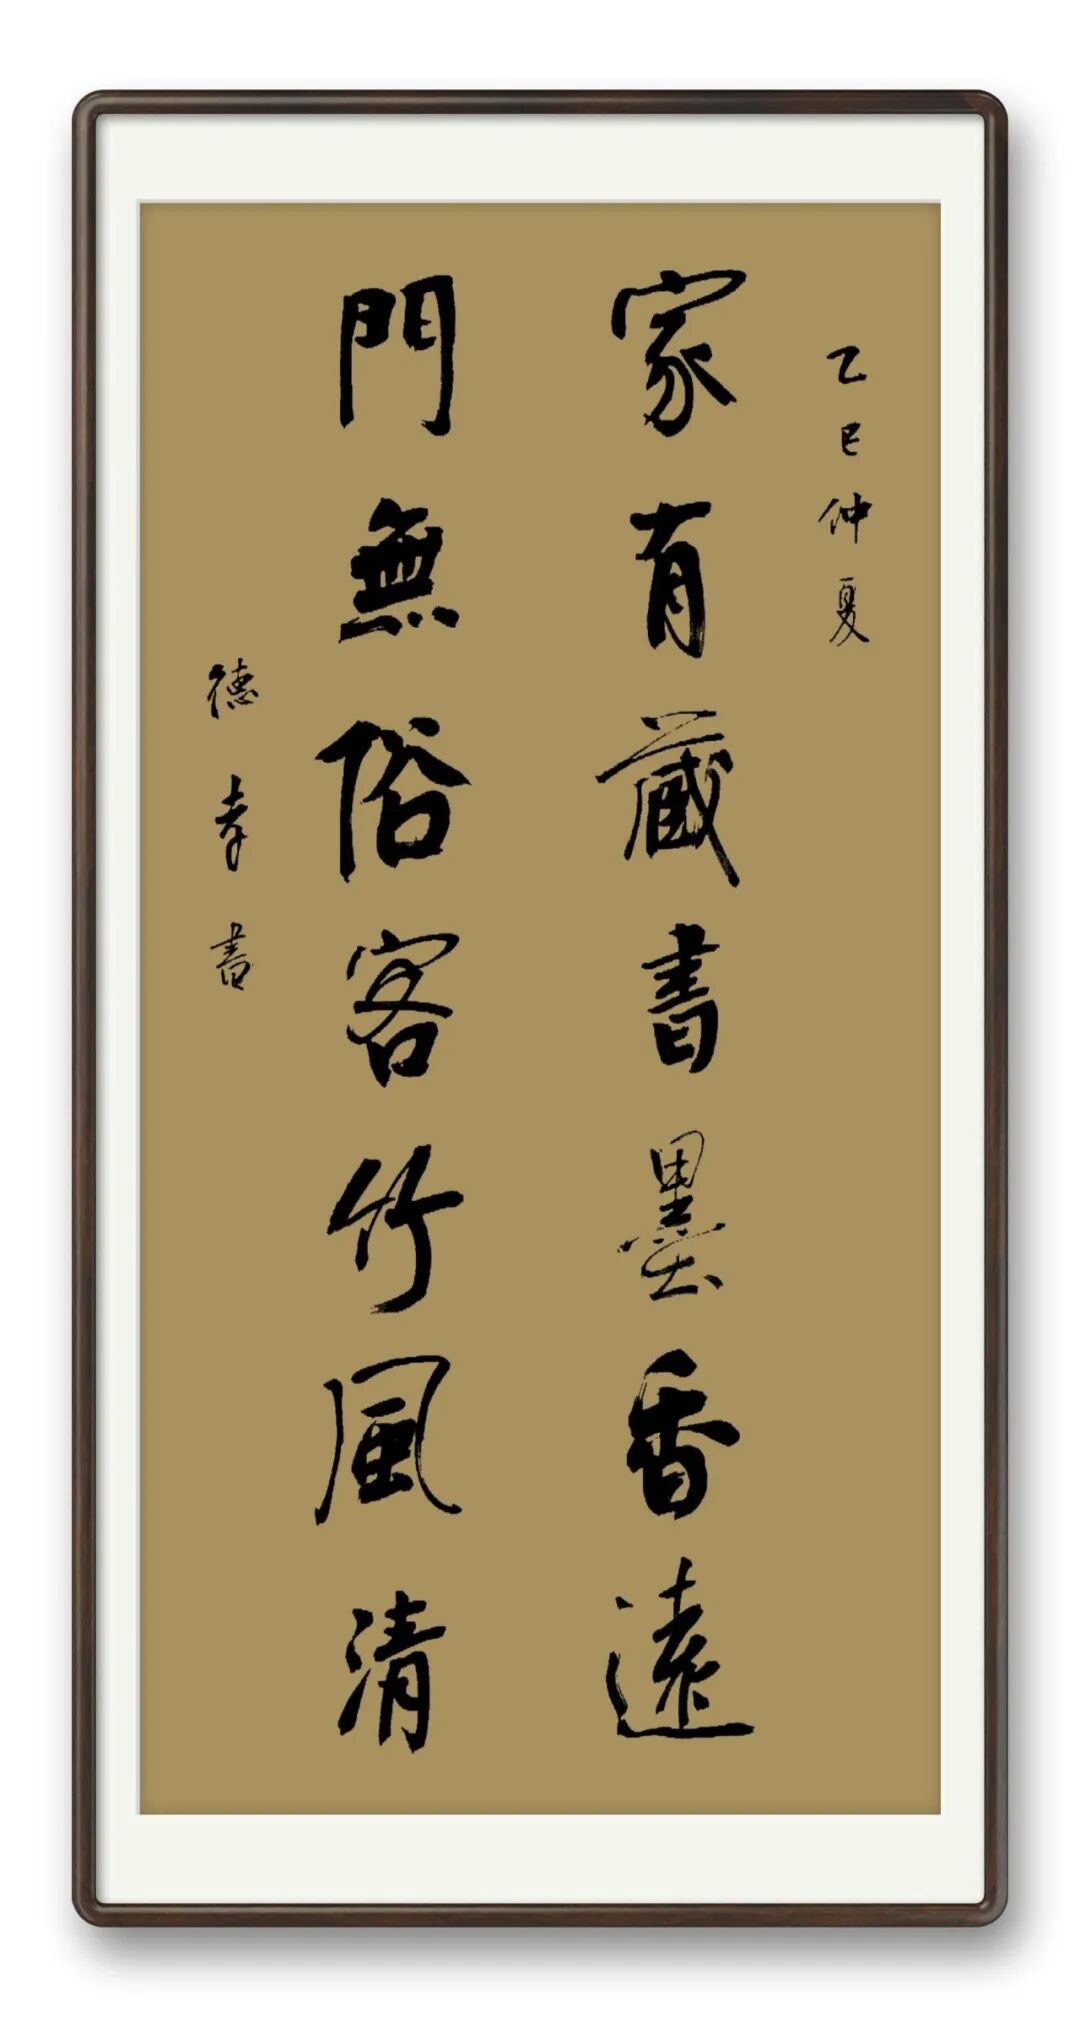 乙巳仲夏
家有藏書墨香遠
門無俗客竹風清
德孝書